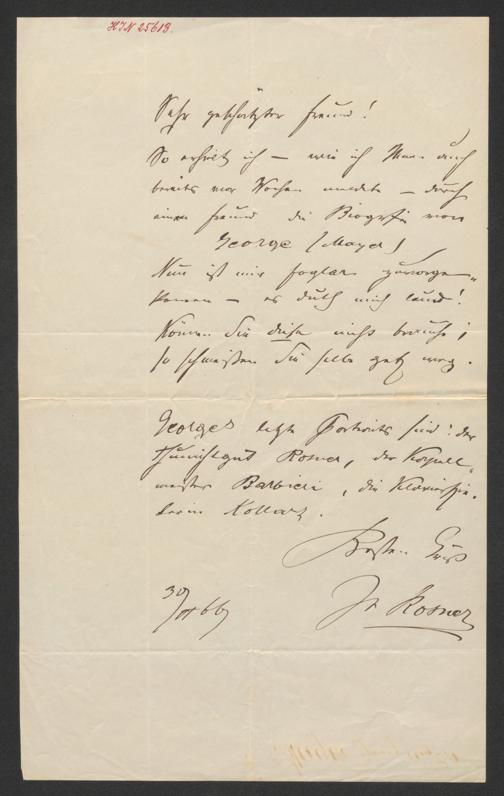 HIN 25618.
Sehr geschätzter Freund!
So erhielt ich — wie ich Ihnen auch
bereits vor Wochen meldete — durch
einen Freund die Biografie von
George (Mayer)
Nun ist mir Foglar zuvorge-
kommen — es thuth mich leid!
Können Sie diese nicht brauchen,
so schmeißen Sie selbe gefl weg.
Georges letzte Portraits sind: der
Rosner, der Kapell-
meister Barbieri, die Klavierspie-
lerin Kollar.
Besten Gruß
Rosner
30/ 66